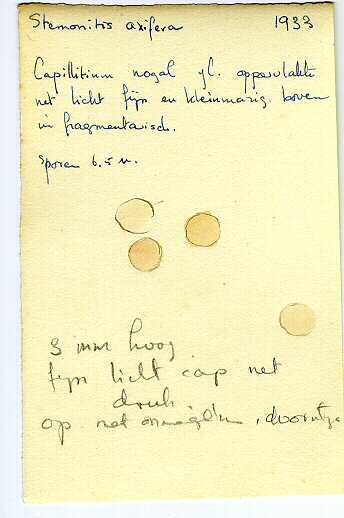 Stemonitis axifera 1933
Capillitium nogal gl. oppervlakte
net licht fijn en kleinmazig. boven
in fragmentarisch.
Sporen 6.5 µ.
3 mm hoog
fijn licht cap net
donk
op net